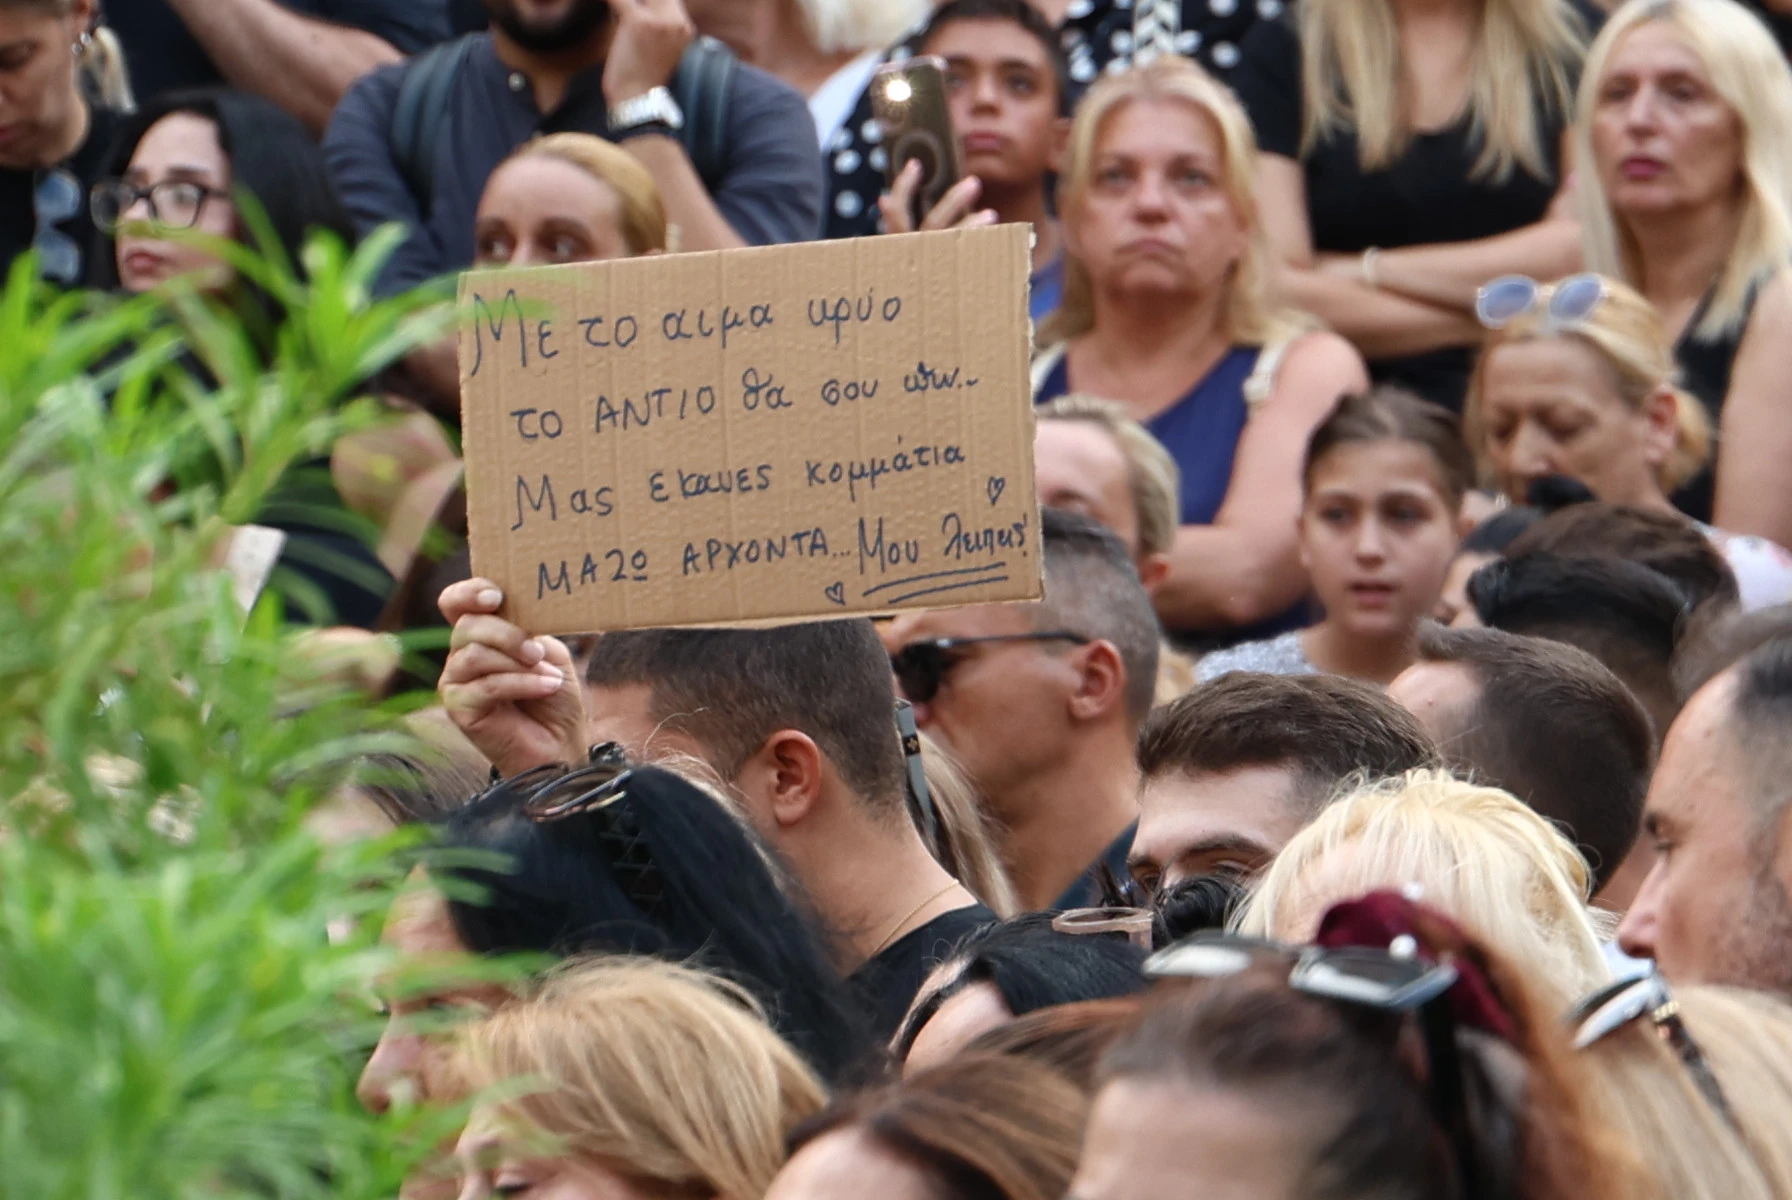 Με το αιμα κρύο
το ΑΝΤΙΟ θα σου πω..
Μας εκανες κομμάτια
ΜΑΖΩ ΑΡΧΟΝΤΑ... Μου λειπεις!